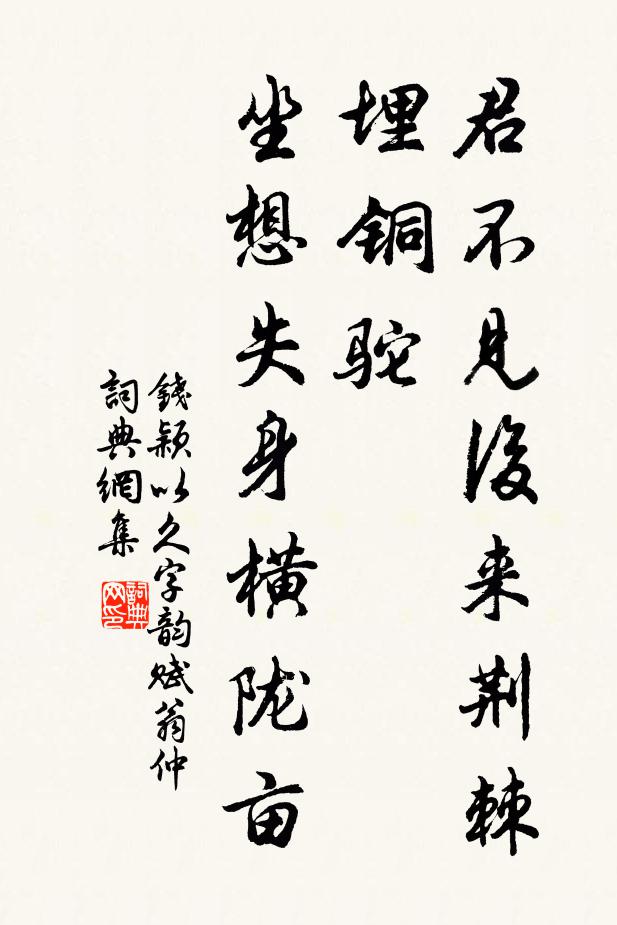 君不见後来荆棘
埋铜驼
坐想失身横陇亩
錢颖以久字韵赋翁仲
詞典網集
詞典网印